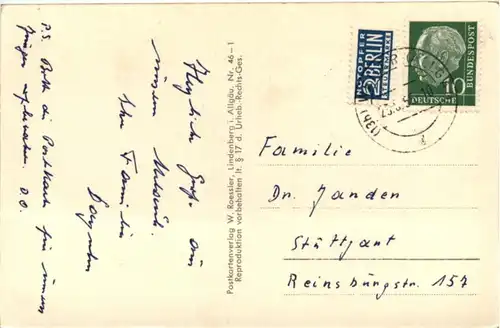 P.S. Bitte die Postkarte für unsere
Jungen aufheben. D.O.
Herzliche Grüße aus
unserem Urlaub.
Ihre Familie
Postkartenverlag W. Roessler, Lindenberg i. Allgäu. Nr. 46-1
Reproduktion vorbehalten lt. § 17 d. Urheb.-Rechts-Ges.
NOTOPFER
2 BERLIN
STEUERMARKE
DEUTSCHE
BUNDESPOST
10
Familie
Dr. Janden
Stüttgart
Reinsbürgstr. 157